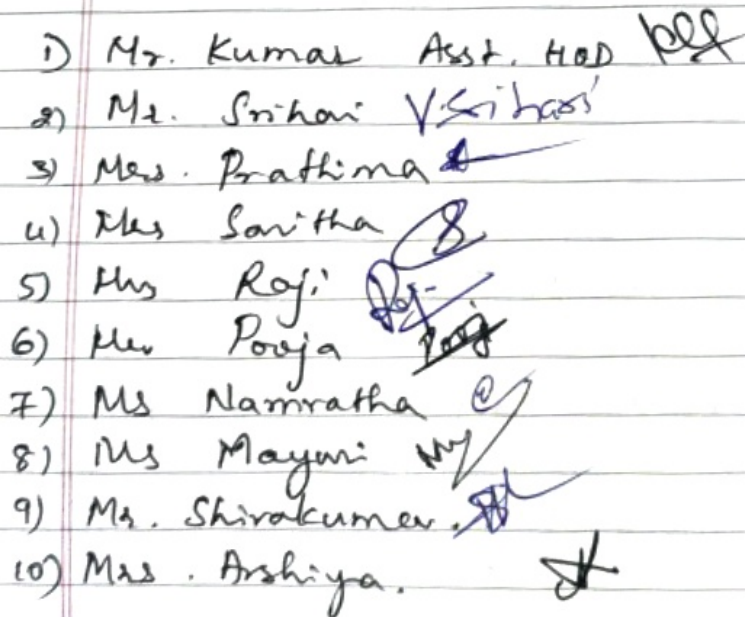 1) Mr. Kumar Asst. HOD
2) Mr. Srihari V.Srihari
3) Mrs. Prathima
4) Mrs Savitha
5) Mrs Raji Raji
6) Mrs Pooja Pooj
7) Ms Namratha
8) Ms Mayuri My
9) Mr. Shivakumar.
10) Mrs. Arshiya.